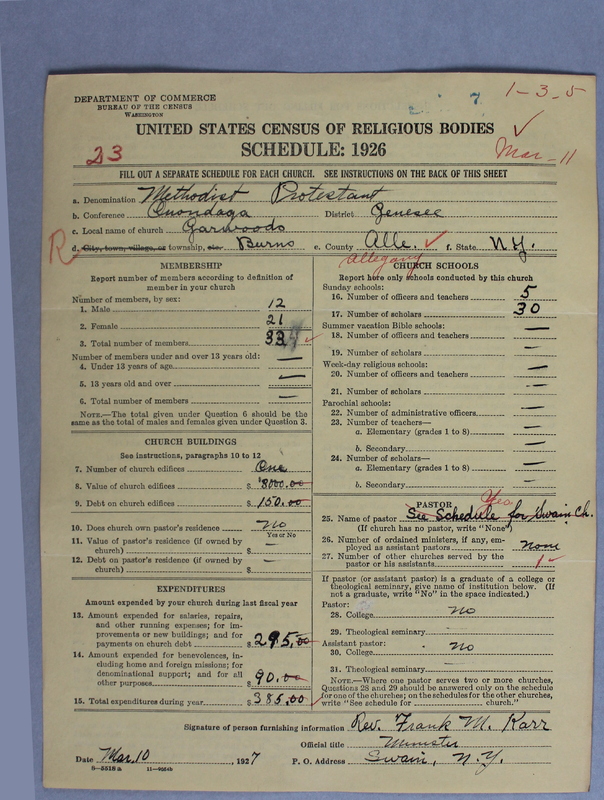 1-3-5
7
DEPARTMENT OF COMMERCE
BUREAU OF THE CENSUS
WASHINGTON
UNITED STATES CENSUS OF RELIGIOUS BODIES
23
SCHEDULE: 1926
Mar-11
FILL OUT A SEPARATE SCHEDULE FOR EACH CHURCH. SEE INSTRUCTIONS ON THE BACK OF THIS SHEET
a. Denomination Methodist Protestant
b. Conference Onondaga District Genesee
c. Local name of church Garwoods
R d. City, town, village, or township, etc. Burns e. County Alle. f. State N.Y.
Allegany
MEMBERSHIP
Report number of members according to definition of
member in your church
Number of members, by sex:
1. Male 12
2. Female 21
3. Total number of members 33
Number of members under and over 13 years old: —
4. Under 13 years of age
5. 13 years old and over —
6. Total number of members —
NOTE.—The total given under Question 6 should be the
same as the total of males and females given under Question 3.
CHURCH BUILDINGS
See instructions, paragraphs 10 to 12
7. Number of church edifices One
8. Value of church edifices $ 8000.00
9. Debt on church edifices $ 150.00
10. Does church own pastor's residence No
Yes or No
11. Value of pastor's residence (if owned by
church) $ —
12. Debt on pastor's residence (if owned by
church) $ —
EXPENDITURES
Amount expended by your church during last fiscal year
13. Amount expended for salaries, repairs,
and other running expenses; for im-
provements or new buildings; and for
payments on church debt $ 295.00
14. Amount expended for benevolences, in-
cluding home and foreign missions; for
denominational support; and for all
other purposes $ 90.00
15. Total expenditures during year $ 385.00
CHURCH SCHOOLS
Report here only schools conducted by this church
Sunday schools:
16. Number of officers and teachers 5
17. Number of scholars 30
Summer vacation Bible schools:
18. Number of officers and teachers —
19. Number of scholars —
Week-day religious schools:
20. Number of officers and teachers —
21. Number of scholars —
Parochial schools:
22. Number of administrative officers —
23. Number of teachers—
a. Elementary (grades 1 to 8) —
b. Secondary —
24. Number of scholars—
a. Elementary (grades 1 to 8) —
b. Secondary —
PASTOR Yes
25. Name of pastor See Schedule for Swain Ch.
(If church has no pastor, write "None")
26. Number of ordained ministers, if any, em-
ployed as assistant pastors none
27. Number of other churches served by the
pastor or his assistants 1
If pastor (or assistant pastor) is a graduate of a college or
theological seminary, give name of institution below. (If
not a graduate, write "No" in the space indicated.)
Pastor:
28. College no
29. Theological seminary
Assistant pastor:
30. College no
31. Theological seminary
NOTE.—Where one pastor serves two or more churches,
Questions 28 and 29 should be answered only on the schedule
for one of the churches; on the schedules for the other churches,
write "See schedule for church."
Signature of person furnishing information Rev. Frank M. Karr
Official title Minister
Date Mar. 10, 1927 P. O. Address Swain, N.Y.
8-5518a 11-9264b